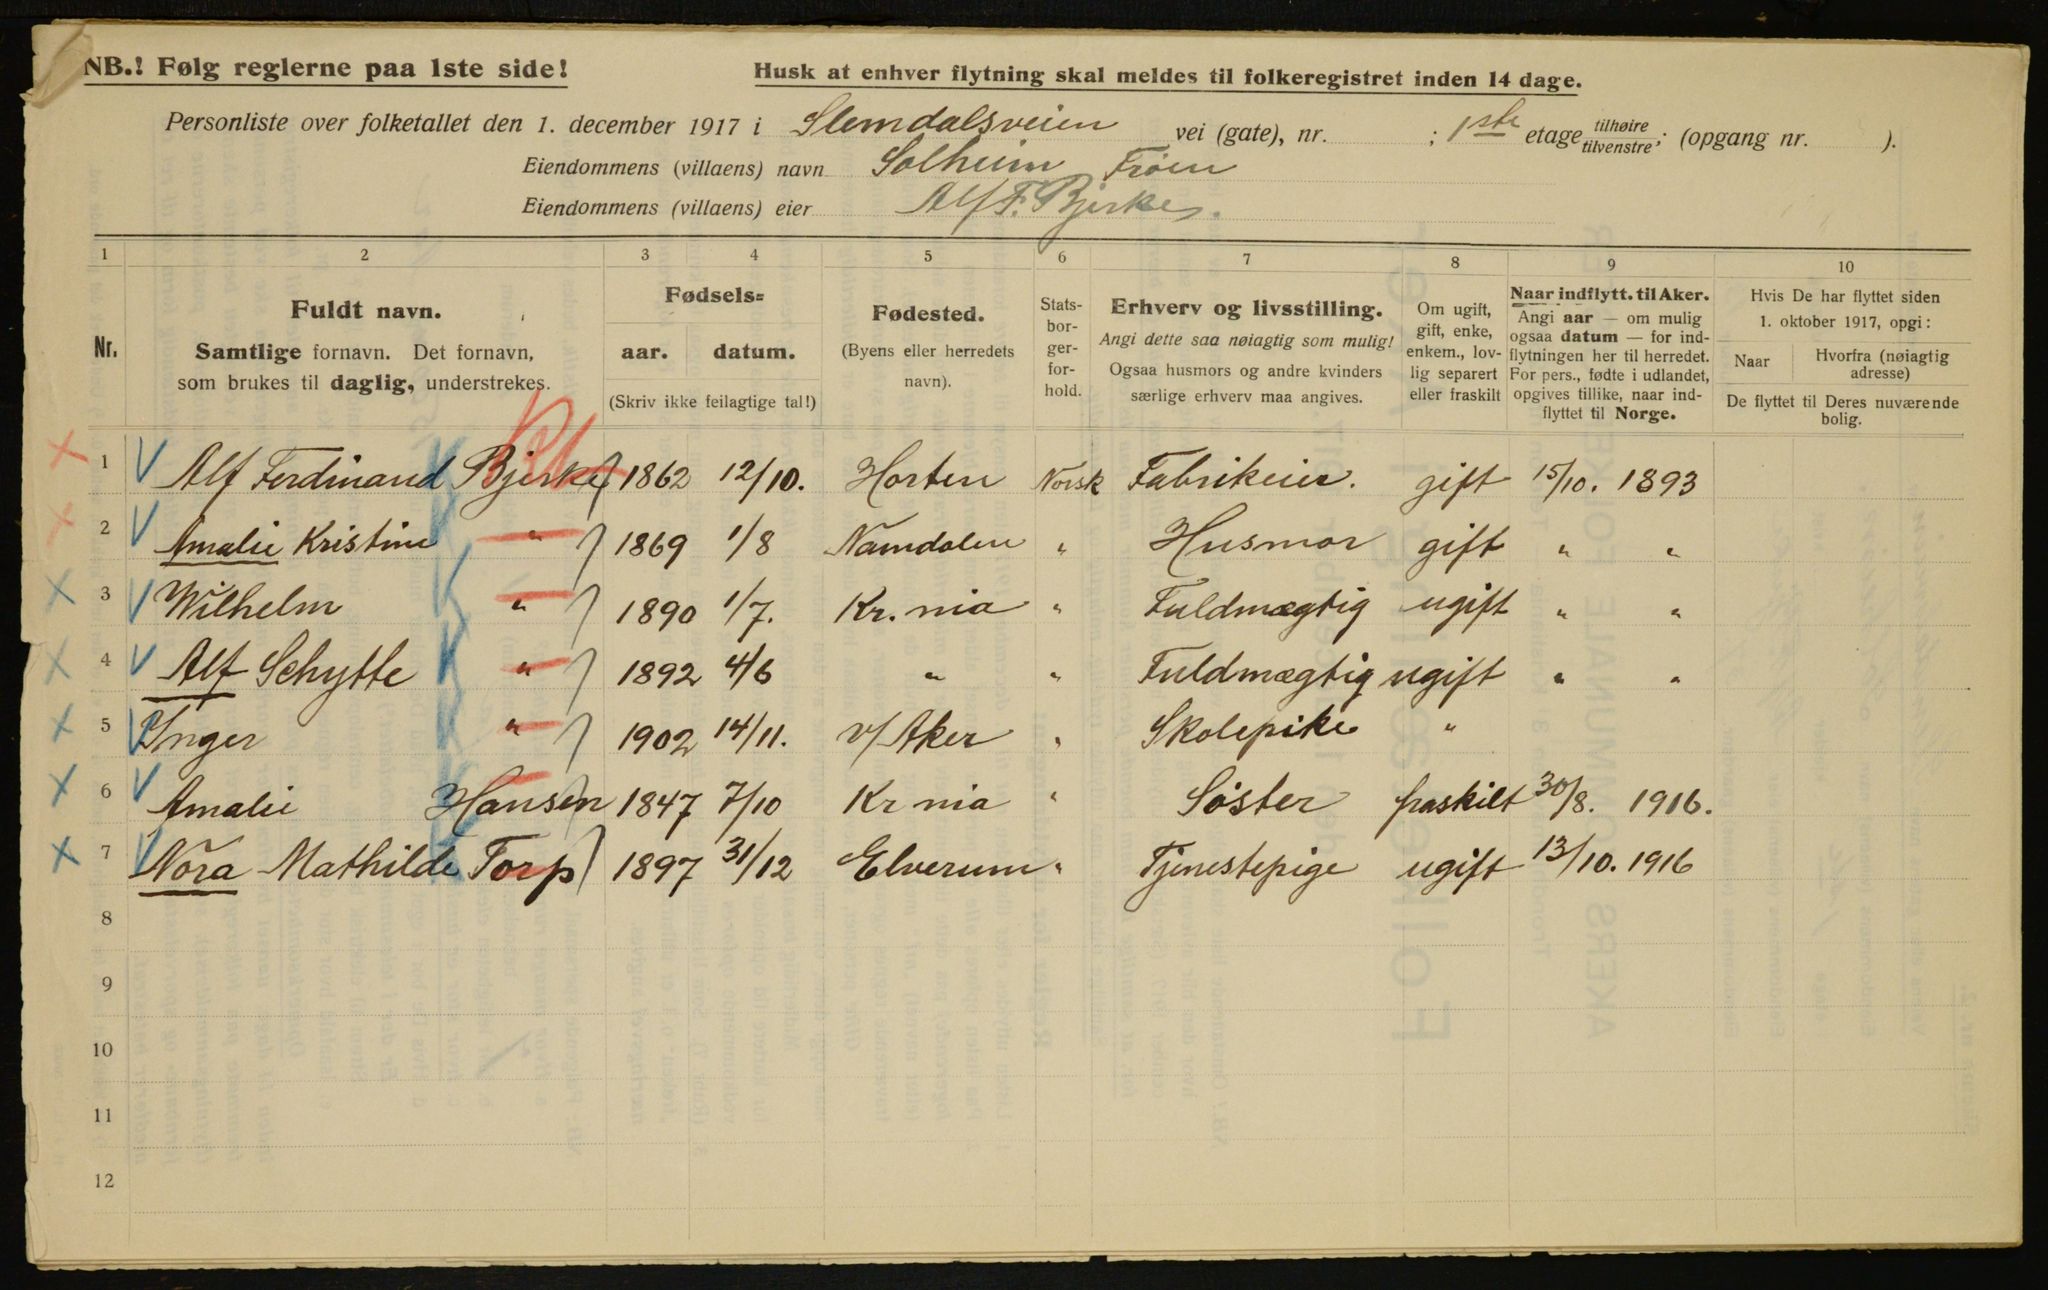 NB.! Følg reglerne paa 1ste side!
Husk at enhver flytning skal meldes til folkeregistret inden 14 dage.
Personliste over folketallet den 1. december 1917 i Slemdalsveien vei (gate), nr. ; 1ste etage tilhøire tilvenstre; (opgang nr. ).
Eiendommens (villaens) navn Solheim Frøen
Eiendommens (villaens) eier Alf F. Bjerke.
1 2 3 4 5 6 7 8 9 10
Nr.
Fuldt navn.
Samtlige fornavn. Det fornavn,
som brukes til daglig, understrekes.
Fødsels=
aar. datum.
(Skriv ikke feilagtige tal!)
Fødested.
(Byens eller herredets
navn).
Stats-
bor-
ger-
for-
hold.
Erhverv og livsstilling.
Angi dette saa nøiagtig som mulig!
Ogsaa husmors og andre kvinders
særlige erhverv maa angives.
Om ugift,
gift, enke,
enkem., lov-
lig separert
eller fraskilt
Naar indflytt. til Aker.
Angi aar — om mulig
ogsaa datum — for ind-
flytningen her til herredet.
For pers., fødte i udlandet,
opgives tillike, naar ind-
flyttet til Norge.
Hvis De har flyttet siden
1. oktober 1917, opgi:
Naar
Hvorfra (nøiagtig
adresse)
De flyttet til Deres nuværende
bolig.
1 Alf Ferdinand Bjerke 1862 12/10. Horten Norsk Fabrikeier. gift 15/10. 1893
2 Amalie Kristine " 1869 1/8 Namdalen " Husmor gift " "
3 Wilhelm " 1890 1/7. Kr.nia " Fuldmægtig ugift " "
4 Alf Schytte " 1892 4/6 " " Fuldmægtig ugift " "
5 Inger " 1902 14/11. v/Aker " Skolepike "
6 Amalie Hansen 1847 7/10 Kr nia " Söster fraskilt 30/8. 1916.
7 Nora Mathilde Torp 1897 31/12 Elverum " Tjenestepige ugift 13/10. 1916
8
9
10
11
12